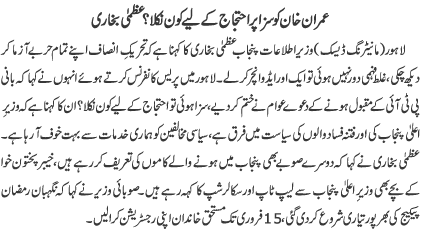 عمران خان کو سزا پر احتجاج کے لیے کون نکلا؟ عظمیٰ بخاری
لاہور (مانیٹرنگ ڈیسک) وزیر اطلاعات پنجاب عظمیٰ بخاری کا کہنا ہے کہ تحریک انصاف اپنے تمام حربے آزما کر
دیکھ چکی، غلط فہمی دور نہیں ہوئی تو ایک اور ایڈونچر کر لے۔ لاہور میں پریس کانفرنس کرتے ہوئے انہوں نے کہا کہ بانی
پی ٹی آئی کے مقبول ہونے کے دعوے عوام نے ختم کر دیے، سزا ہوئی تو احتجاج کے لیے کون نکلا؟ عظمیٰ بخاری کا کہنا ہے کہ وزیر
اعلیٰ پنجاب کی اور فتنہ فساد والوں کی سیاست میں فرق ہے، سیاسی مخالفین کو ہماری خدمات سے بہت خوف آ رہا ہے۔
عظمیٰ بخاری نے کہا کہ دوسرے صوبے بھی پنجاب میں ہونے والے کاموں کی تعریف کر رہے ہیں، خیبر پختون خوا
کے بچے بھی وزیر اعلیٰ پنجاب سے لیپ ٹاپ اور سکالرشپ کا کہہ رہے ہیں۔ صوبائی وزیر نے کہا کہ نگہبان رمضان
پیکیج کی بھرپور تیاری شروع کر دی گئی، 15 فروری تک مستحق خاندان اپنی رجسٹریشن کرا لیں۔